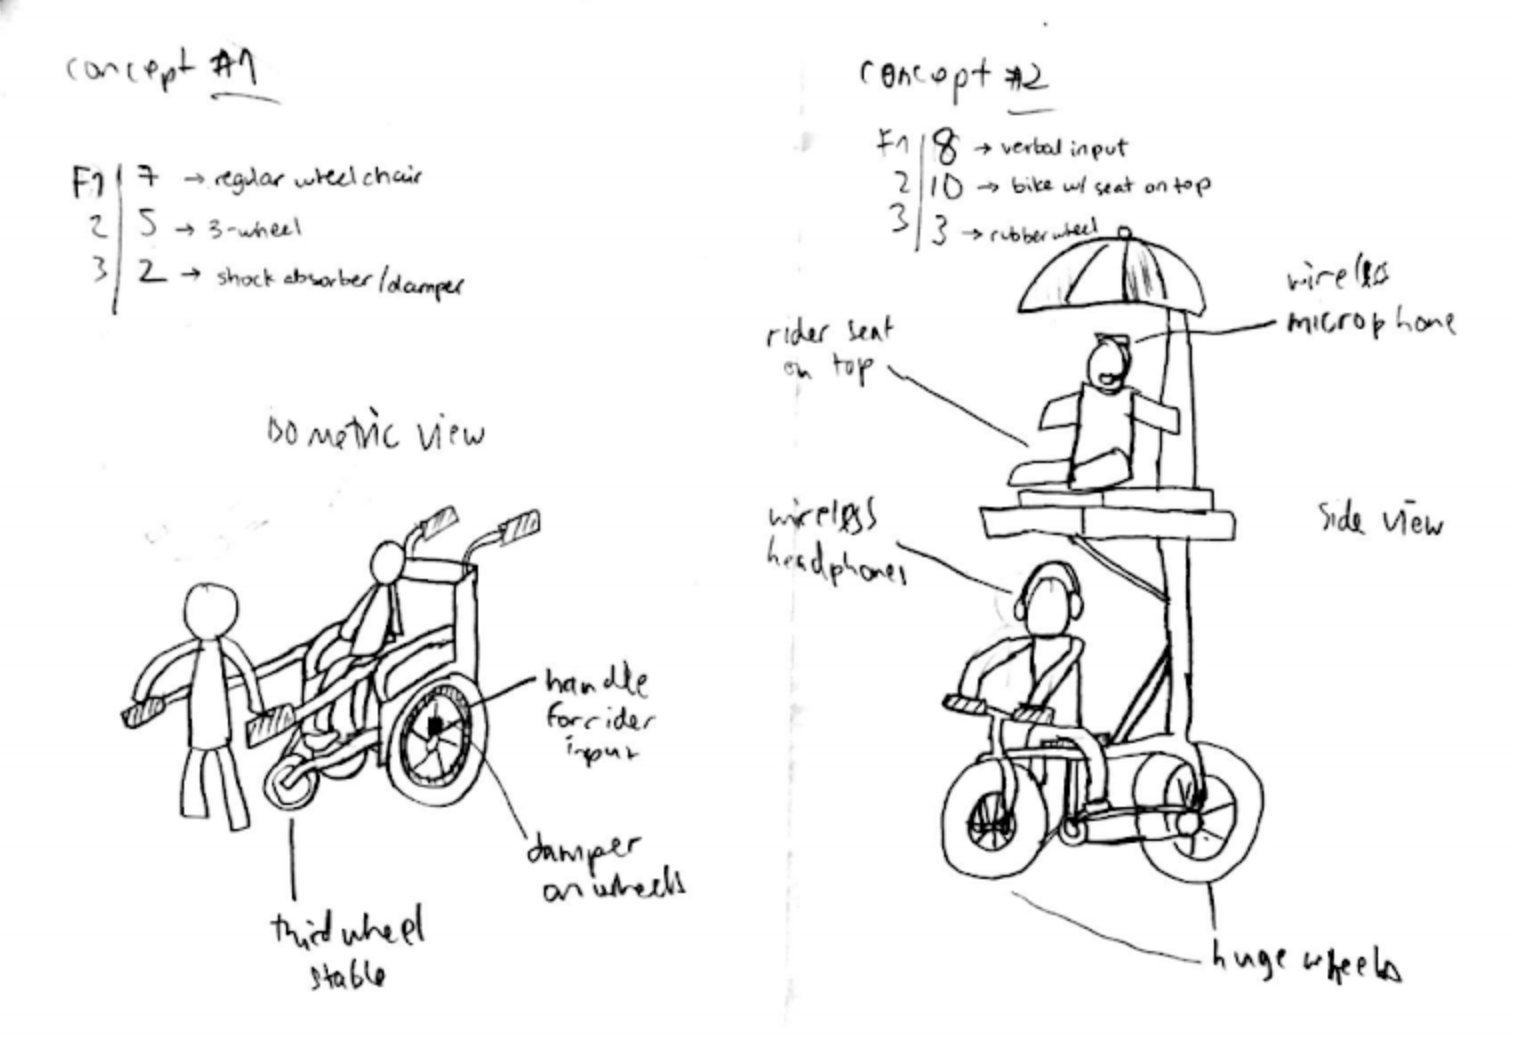 concept #1
F1 | 7 → regular wheel chair
2 | 5 → 3-wheel
3 | 2 → shock absorber/damper
isometric view
handle
for rider
input
damper
on wheels
third wheel
stable
concept #2
F1 | 8 → verbal input
2 | 10 → bike w/ seat on top
3 | 3 → rubber wheel
wireless
microphone
rider seat
on top
wireless
headphones
side view
huge wheels